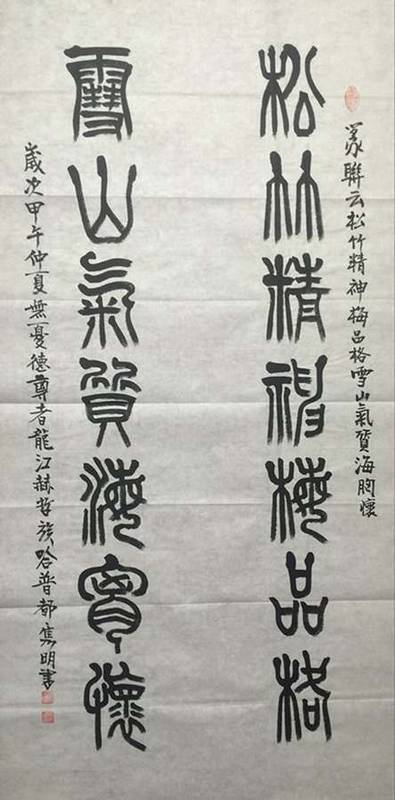 篆聯云松竹精神梅品格雪山氣質海胸懷
松竹精神梅品格
雪山氣質海胸懷
歲次甲午仲夏無憂德尊者龍江赫哲族哈普都隽明書